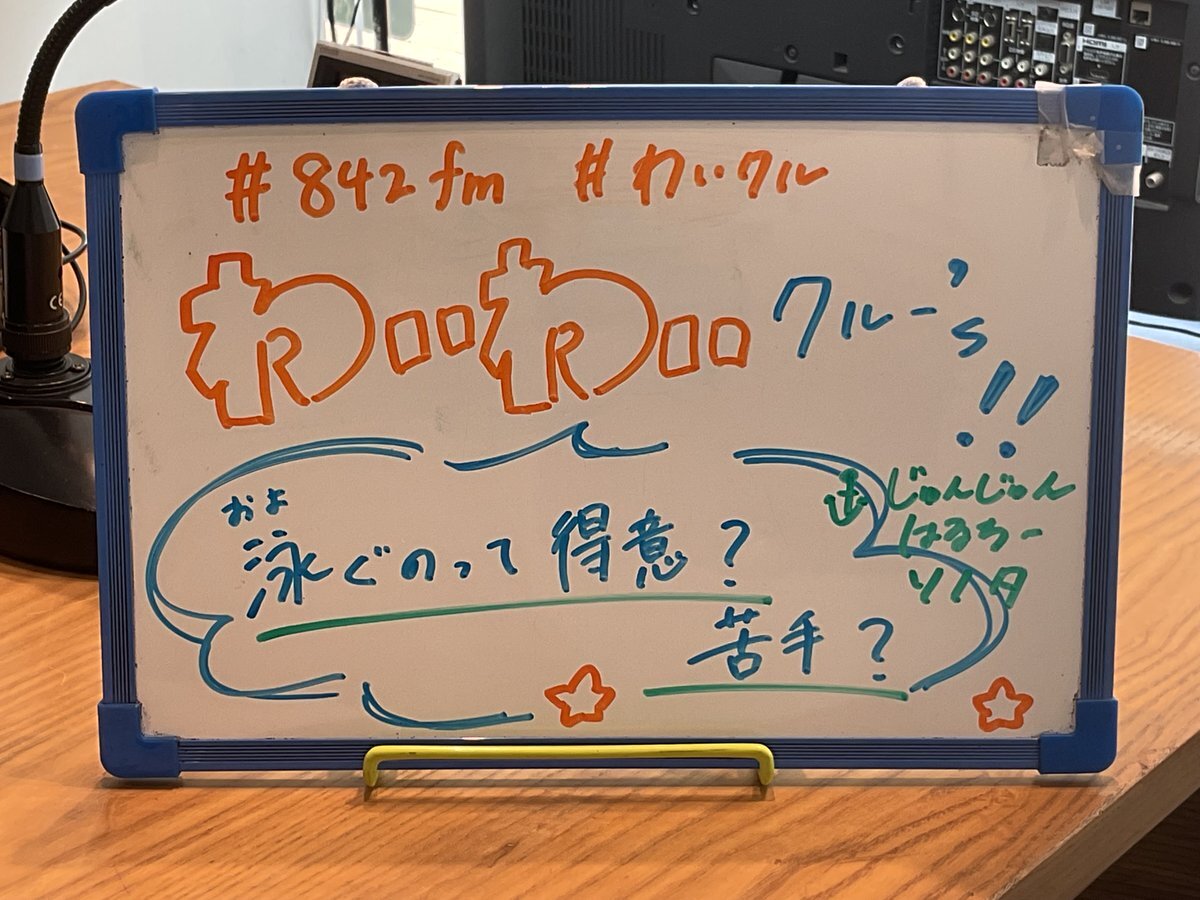 #842fm #わいクル
わいわいクルー's!!
およ
泳ぐのって得意?
苦手?
じゅんじゅん
はるちー
ソノタ
HDMI